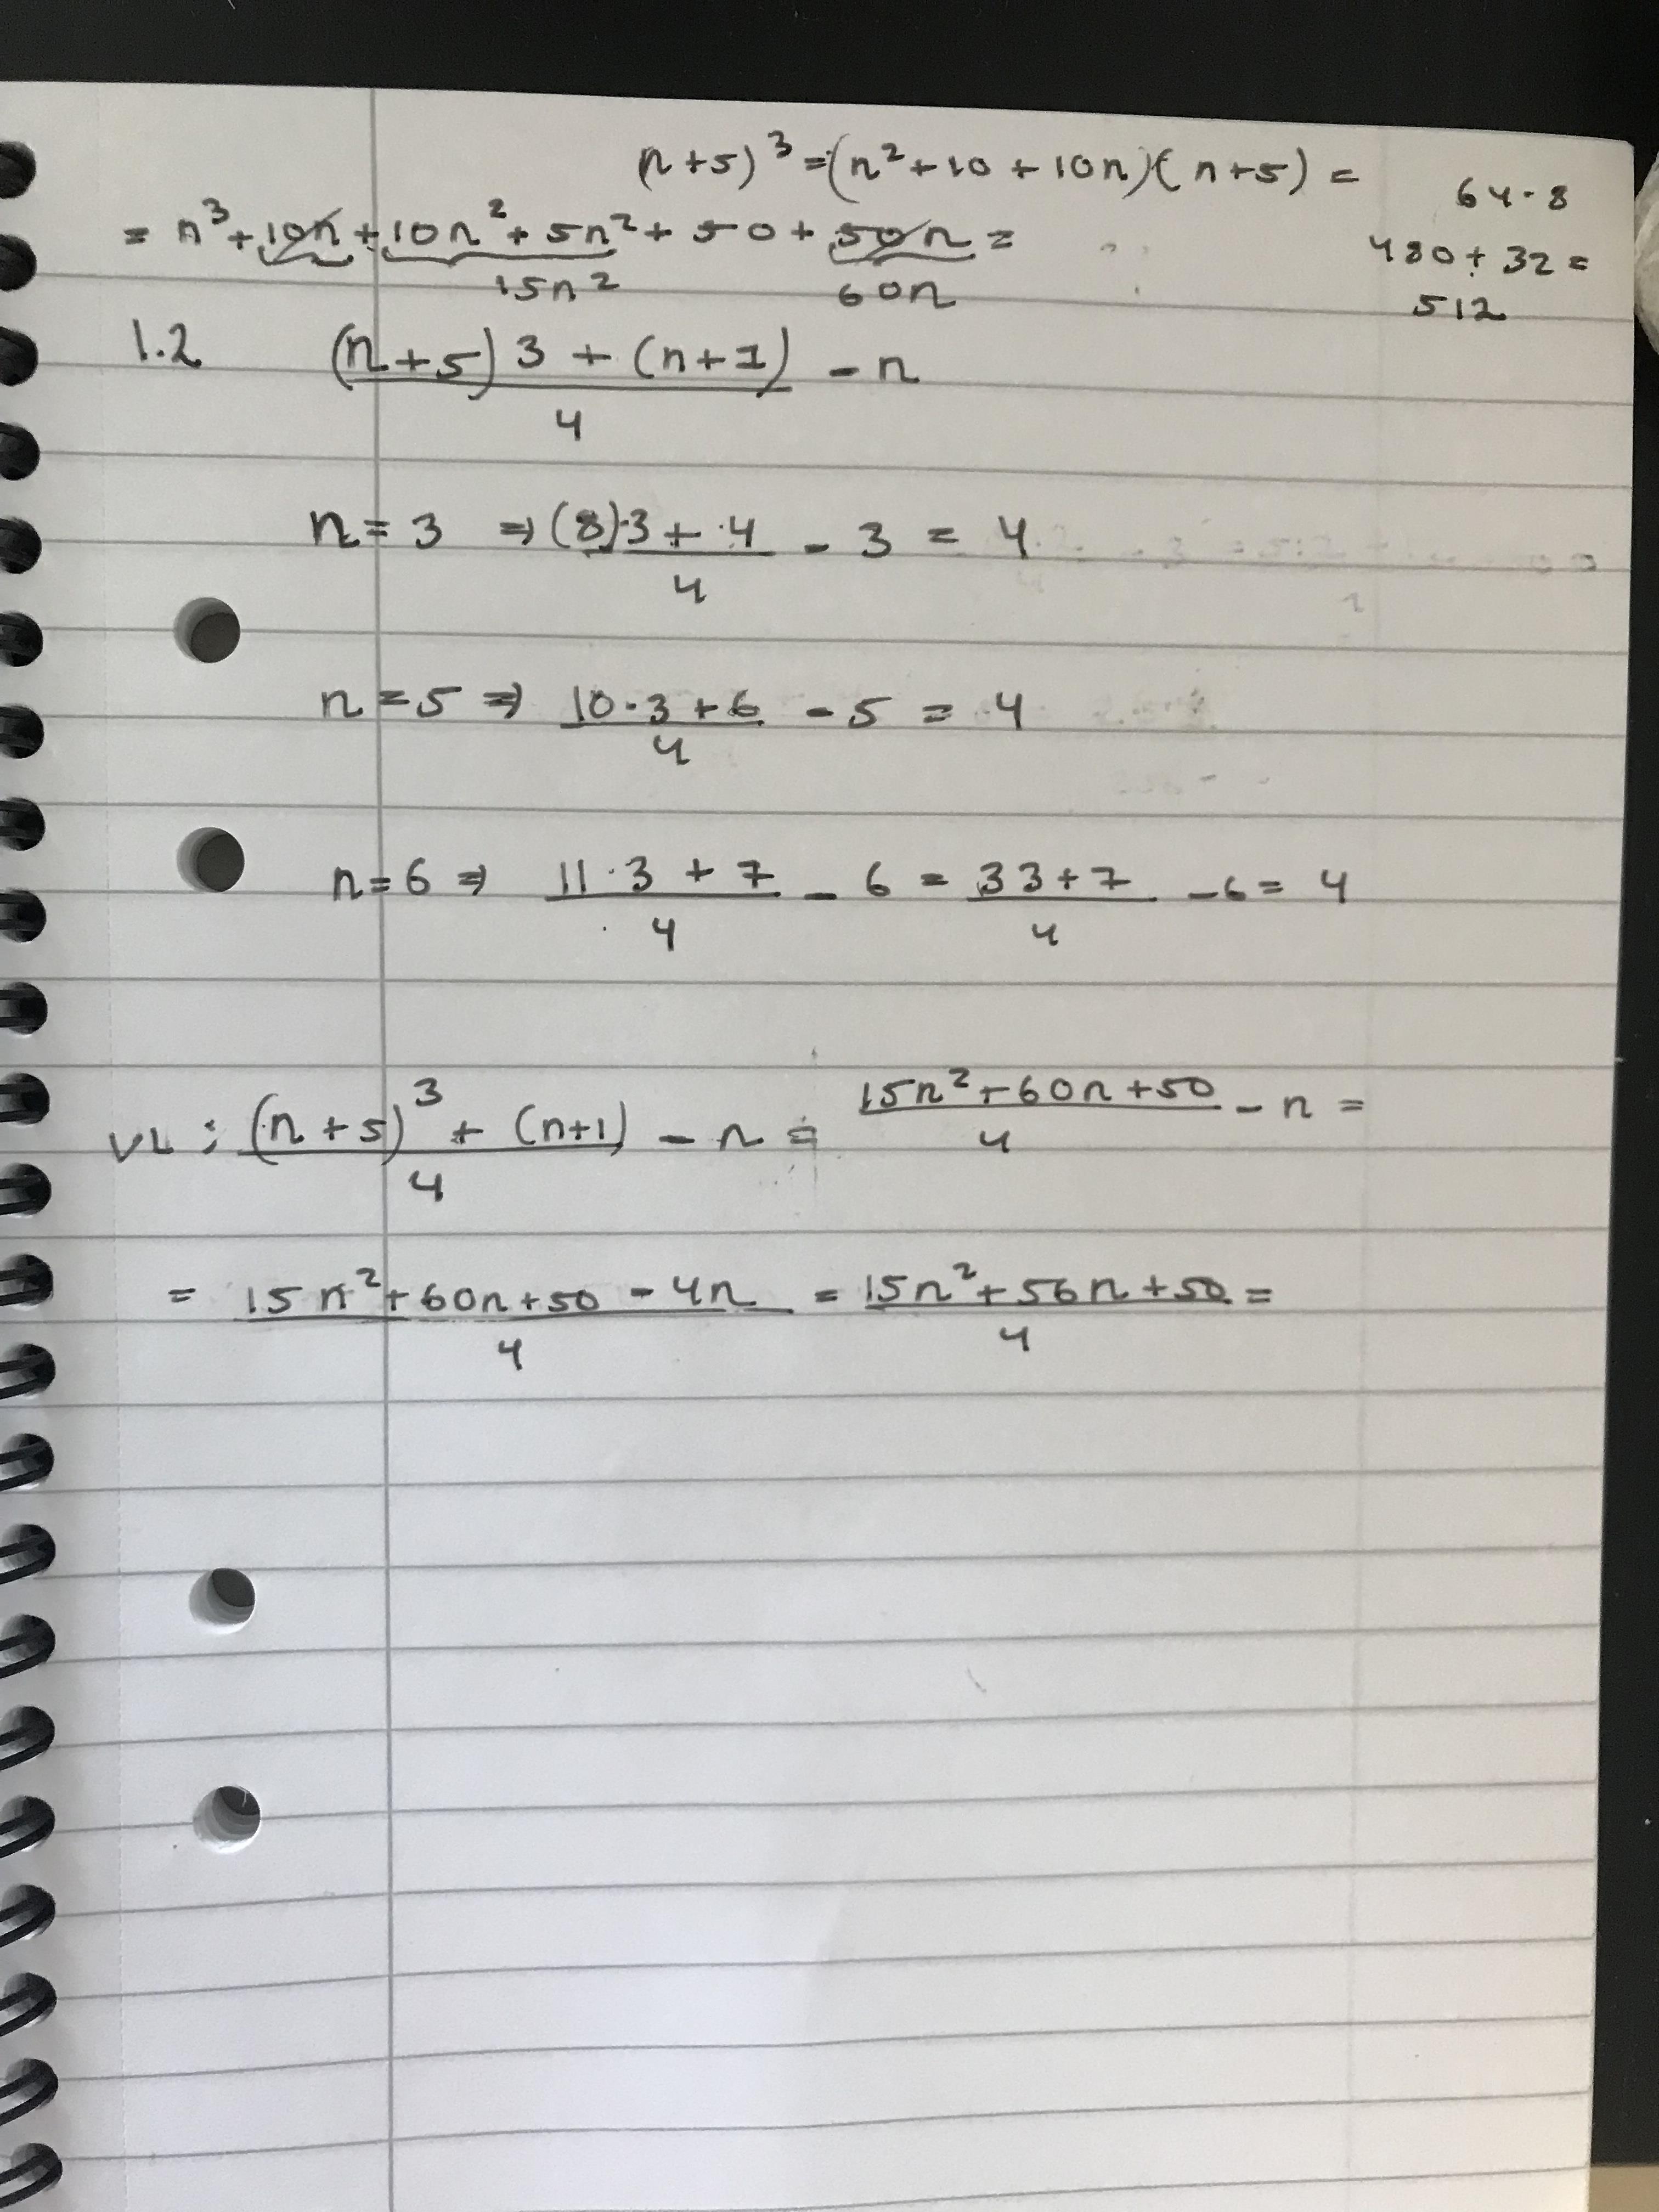 (n+5)³ = (n²+10+10n)(n+5) =
64·8
= n³+10n+10n²+5n²+50+50n =
480+32=
15n² 60n
512
1.2 (n+5)3+(n+1)/4 - n
n=3 ⇒ (8)·3+4/4 - 3 = 4
n=5 ⇒ 10·3+6/4 - 5 = 4
n=6 ⇒ 11·3+7/4 - 6 = 33+7/4 - 6 = 4
VL: (n+5)³+(n+1)/4 - n = 15n²+60n+50/4 - n =
= 15n²+60n+50-4n/4 = 15n²+56n+50/4 =